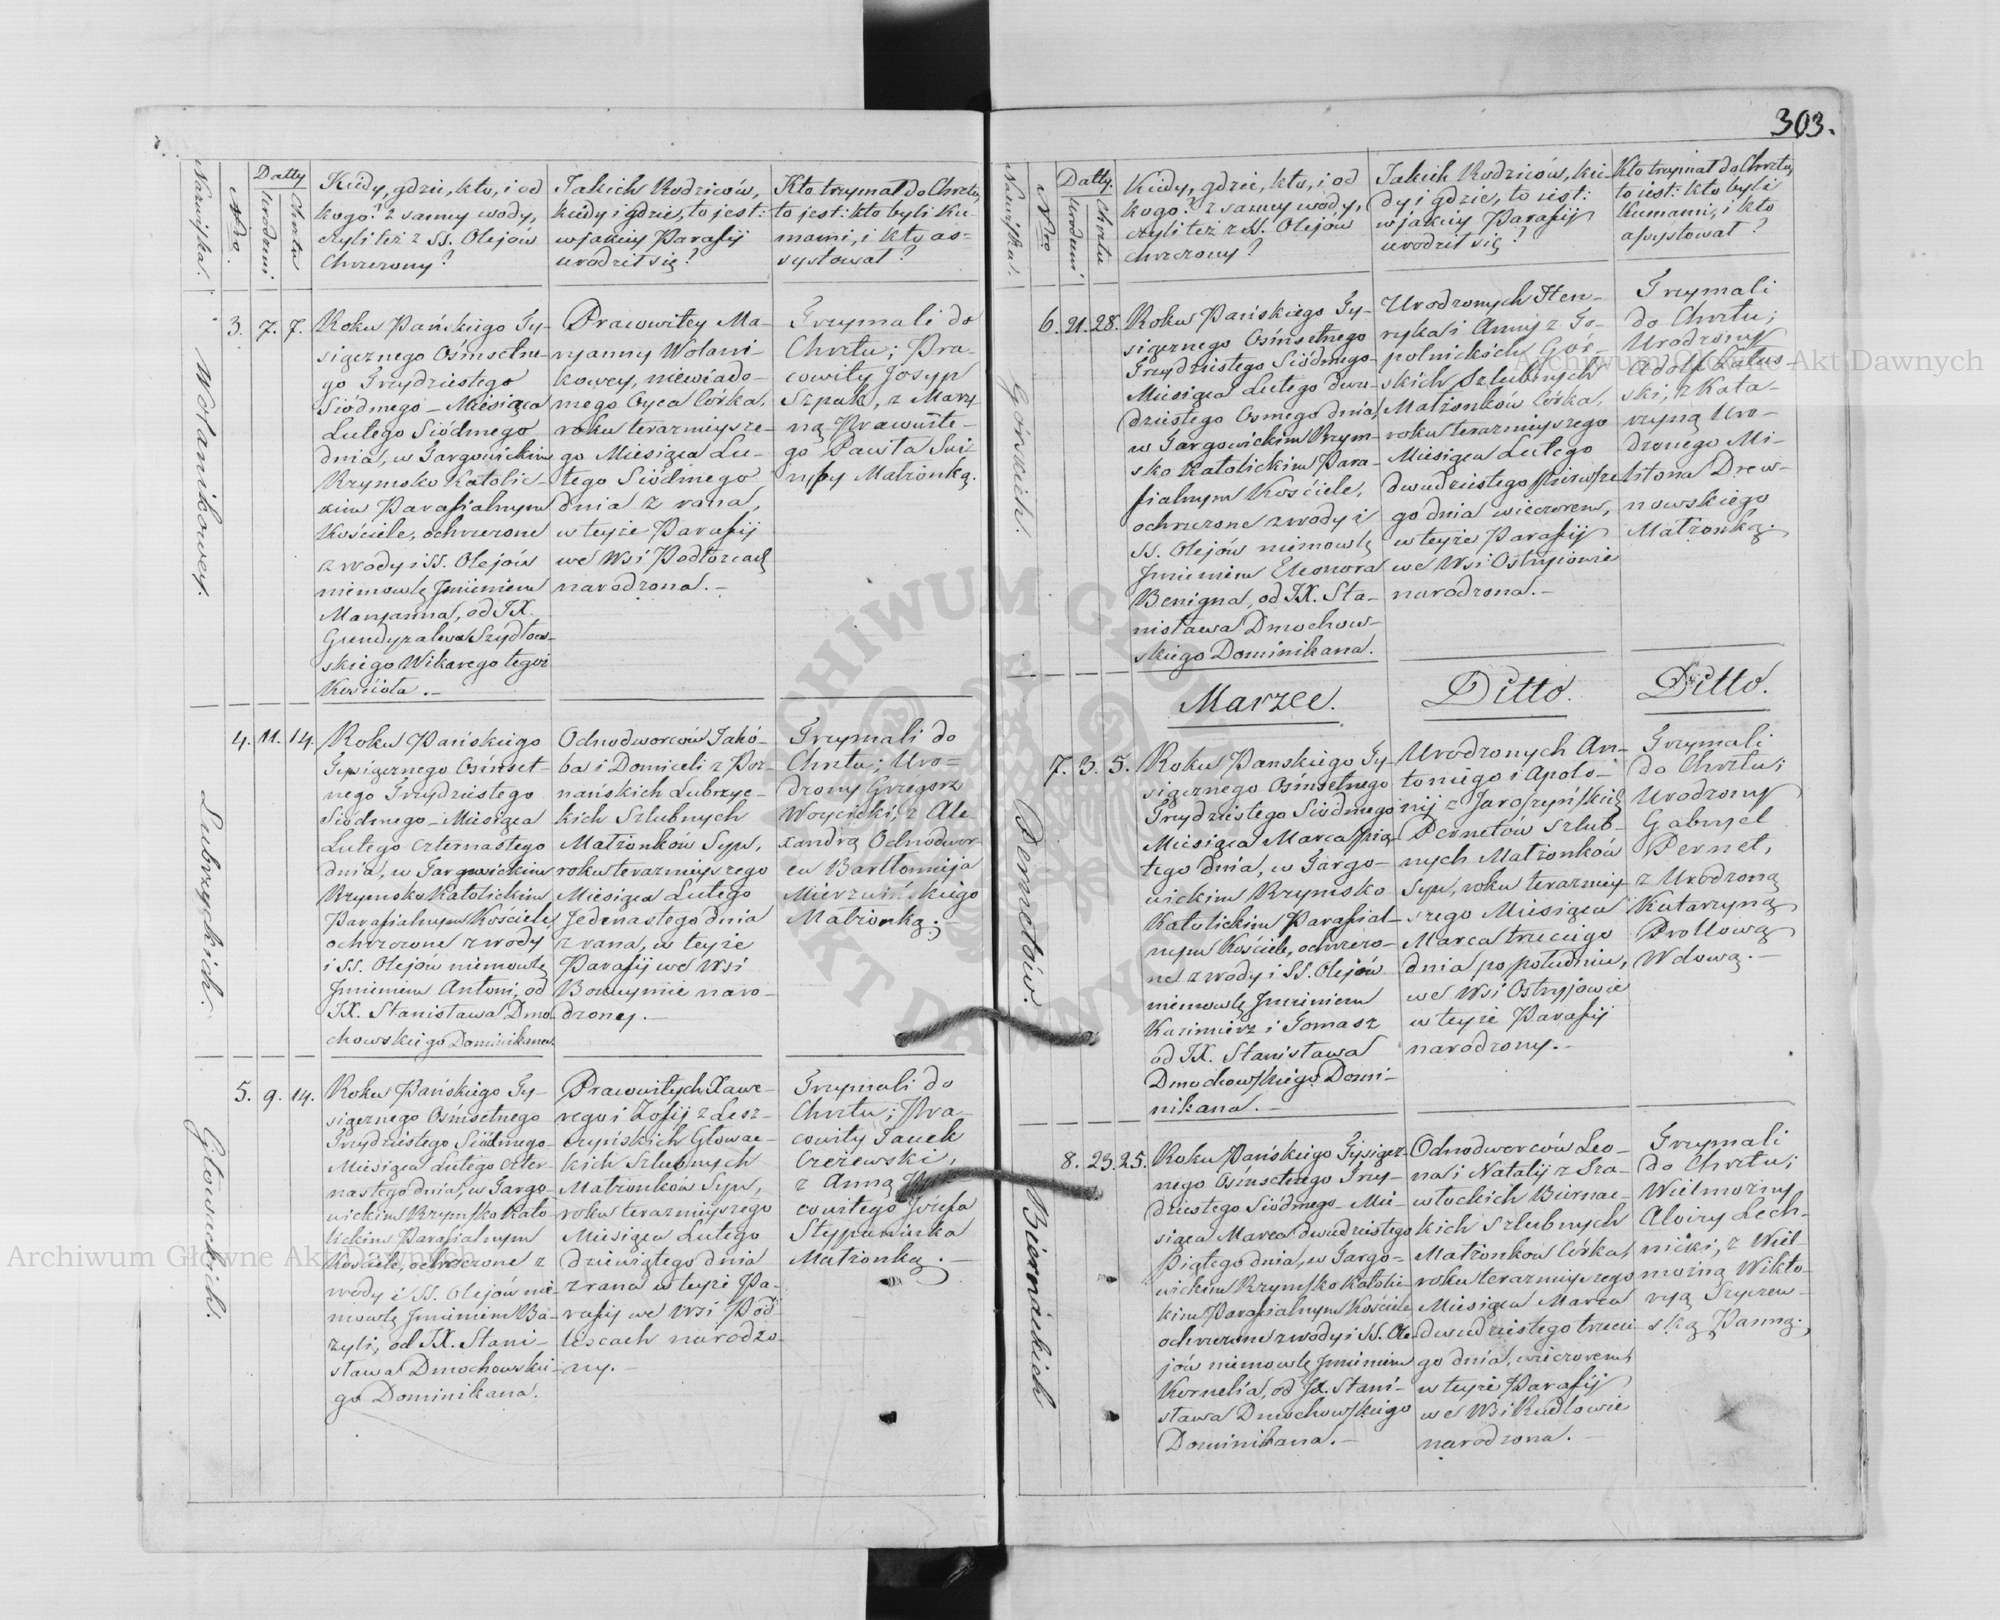 303.
Nazwiska.
Nro.
Datty
Urodzeni
Chrztu
Kiedy, gdzie, kto, i od
kogo? z samey wody,
czyli też z SS. Olejów
Chrzczony?
Jakich Rodziców,
kiedy i gdzie, to jest:
w jakiey Parafij
urodził się?
Kto trzymał do Chrztu,
to jest: kto byli Ku-
mami, i kto as-
systował?
Wolanikowey.
3. 7. 7.
Roku Pańskiego Ty-
siącznego Ośmsetne-
go Trzydziestego
Siódmego – Miesiąca
Lutego Siódmego
dnia, w Targowickim
Rzymsko Katolic-
kim Parafialnym
Kościele, ochrzczone
z wody i SS. Olejów
niemowlę Jmieniem
Maryanna, od JX.
Szydłow-
skiego Wikarego tegoż
Kościoła. –
Pracowitey Ma-
ryanny Wolani-
kowey, niewiado-
mego Oyca Córka,
roku terazmieysze-
go Miesiąca Lu-
tego Siódmego
dnia z rana,
w teyże Parafij
we Wsi Podłozcach
narodzona. –
Trzymali do
Chrztu; Pra-
cowity Josyp
Szpak, z Mary-
ną Pracowite-
go Pawła
Małżonką.
Lubrzyckich.
4. 11. 14.
Roku Pańskiego
Tysiącznego Ośmset-
nego Trzydziestego
Siódmego – Miesiąca
Lutego czternastego
dnia, w Targowickim
Rzymsko Katolickim
Parafialnym Kościele,
ochrzczone z wody
i SS. Olejów niemowlę
Jmieniem Antoni, od
JX. Stanisława Dmo-
chowskiego Dominikana.
Odnodworców Jakó-
ba i Domiceli z Poz-
nańskich Lubrzyc-
kich Szlubnych
Małżonków Syn,
roku terazmieyszego
Miesiąca Lutego
Jedenastego dnia
z rana, w teyże
Parafij we Wsi
naro-
dzoney. –
Trzymali do
Chrztu; Uro-
dzony Grzegorz
Woycicki, z Ale-
xandrą Odnodwor-
ca Bartłomieja
Małżonką;
Głowackich.
5. 9. 14.
Roku Pańskiego Ty-
siącznego Ośmsetnego
Trzydziestego Siódmego
Miesiąca Lutego Czter-
nastego dnia, w Targo-
wickim Rzymsko Kato-
lickim Parafialnym
Kościele, ochrzczone z
wody i SS. Olejów nie-
mowlę Jmieniem Ba-
zyli, od JX. Stani-
sława Dmochowskie-
go Dominikana.
Pracowitych Xawe-
rego i Zofij z Lesz-
czyńskich Głowac-
kich Szlubnych
Małżonków Syn,
roku terazmieyszego
Miesiąca Lutego
dziewiątego dnia
z rana w teyże Pa-
rafij we Wsi Pod-
lescach narodzo-
ny. –
Trzymali do
Chrztu; Pra-
cowity Janek
Czeżewski,
z Anną Pra-
cowitego Józefa
Małżonką. –
Nazwiska.
Nro
Datty.
Urodzeni
Chrztu
Kiedy, gdzie, kto, i od
kogo? z samey wody,
czyli też z SS. Olejów
chrzczony?
Jakich Rodziców, kie-
dy i gdzie, to jest:
w jakiey Parafij
urodził się?
Kto trzymał do Chrztu,
to jest: kto byli
Kumami, i kto
assystował?
Górskich.
6. 21. 28.
Roku Pańskiego Ty-
siącznego Ośmsetnego
Trzydziestego Siódmego
Miesiąca Lutego dwu-
dziestego Osmego dnia,
w Targowickim Rzym-
sko Katolickim Para-
fialnym Kościele,
ochrzczone z wody i
SS. Olejów niemowlę
Jmieniem Eleonora
Benigna, od JX. Sta-
nisława Dmochow-
skiego Dominikana.
Urodzonych Hen-
ryka i Anny z To-
polnickich Gór-
skich Szlubnych
Małżonków Córka,
roku terazmieyszego
Miesiąca Lutego
dwudziestego pierwsze-
go dnia wieczorem,
w teyże Parafij
we Wsi Ostryjowie
narodzona. –
Trzymali
do Chrztu;
Urodzony
Adolf
ski, z Kata-
rzyną Uro-
dzonego Mi-
Drew-
nowskiego
Małżonką.
Marzec.
Ditto.
Ditto.
Pernetów.
7. 3. 5.
Roku Pańskiego Ty-
siącznego Ośmsetnego
Trzydziestego Siódmego
Miesiąca Marca pią-
tego dnia, w Targo-
wickim Rzymsko
Katolickim Parafial-
nym Kościele, ochrzczo-
ne z wody i SS. Olejów
niemowlę Jmieniem
Kazimierz i Tomasz
od JX. Stanisława
Dmochowskiego Domi-
nikana. –
Urodzonych An-
toniego i Apolo-
nij z Jaroszyńskich
Pernetów Szlub-
nych Małżonków
Syn, roku terazmiey-
szego Miesiąca
Marca trzeciego
dnia po południu,
we Wsi Ostryjowie
w teyże Parafij
narodzony. –
Trzymali
do Chrztu;
Urodzony
Gabryel
Pernet,
z Urodzoną
Katarzyną
Prollową
Wdową. –
Biernackich
8. 23. 25.
Roku Pańskiego Tysiącz-
nego Ośmsetnego Trzy-
dziestego Siódmego – Mie-
siąca Marca dwudziestego
Piątego dnia, w Targo-
wickim Rzymsko Katolic-
kim Parafialnym Kościele
ochrzczone z wody i SS. Ole-
jów niemowlę Jmieniem
Kornelia, od JX. Stani-
sława Dmochowskiego
Dominikana. –
Odnodworców Leo-
na i Natalij z Sza-
włockich Biernac-
kich Szlubnych
Małżonków Córka,
roku terazmieyszego
Miesiąca Marca
dwudziestego trzecie-
go dnia, wieczorem,
w teyże Parafij
we Wsi Rudłowie
narodzona. –
Trzymali
do Chrztu;
Wielmożny
Aloizy Lech-
nicki, z Wiel-
możną Wikto-
ryą Szyszew-
ską Panną.
Archiwum Główne Akt Dawnych
Archiwum Główne Akt Dawnych
ARCHIWUM GŁÓWNE AKT DAWNYCH